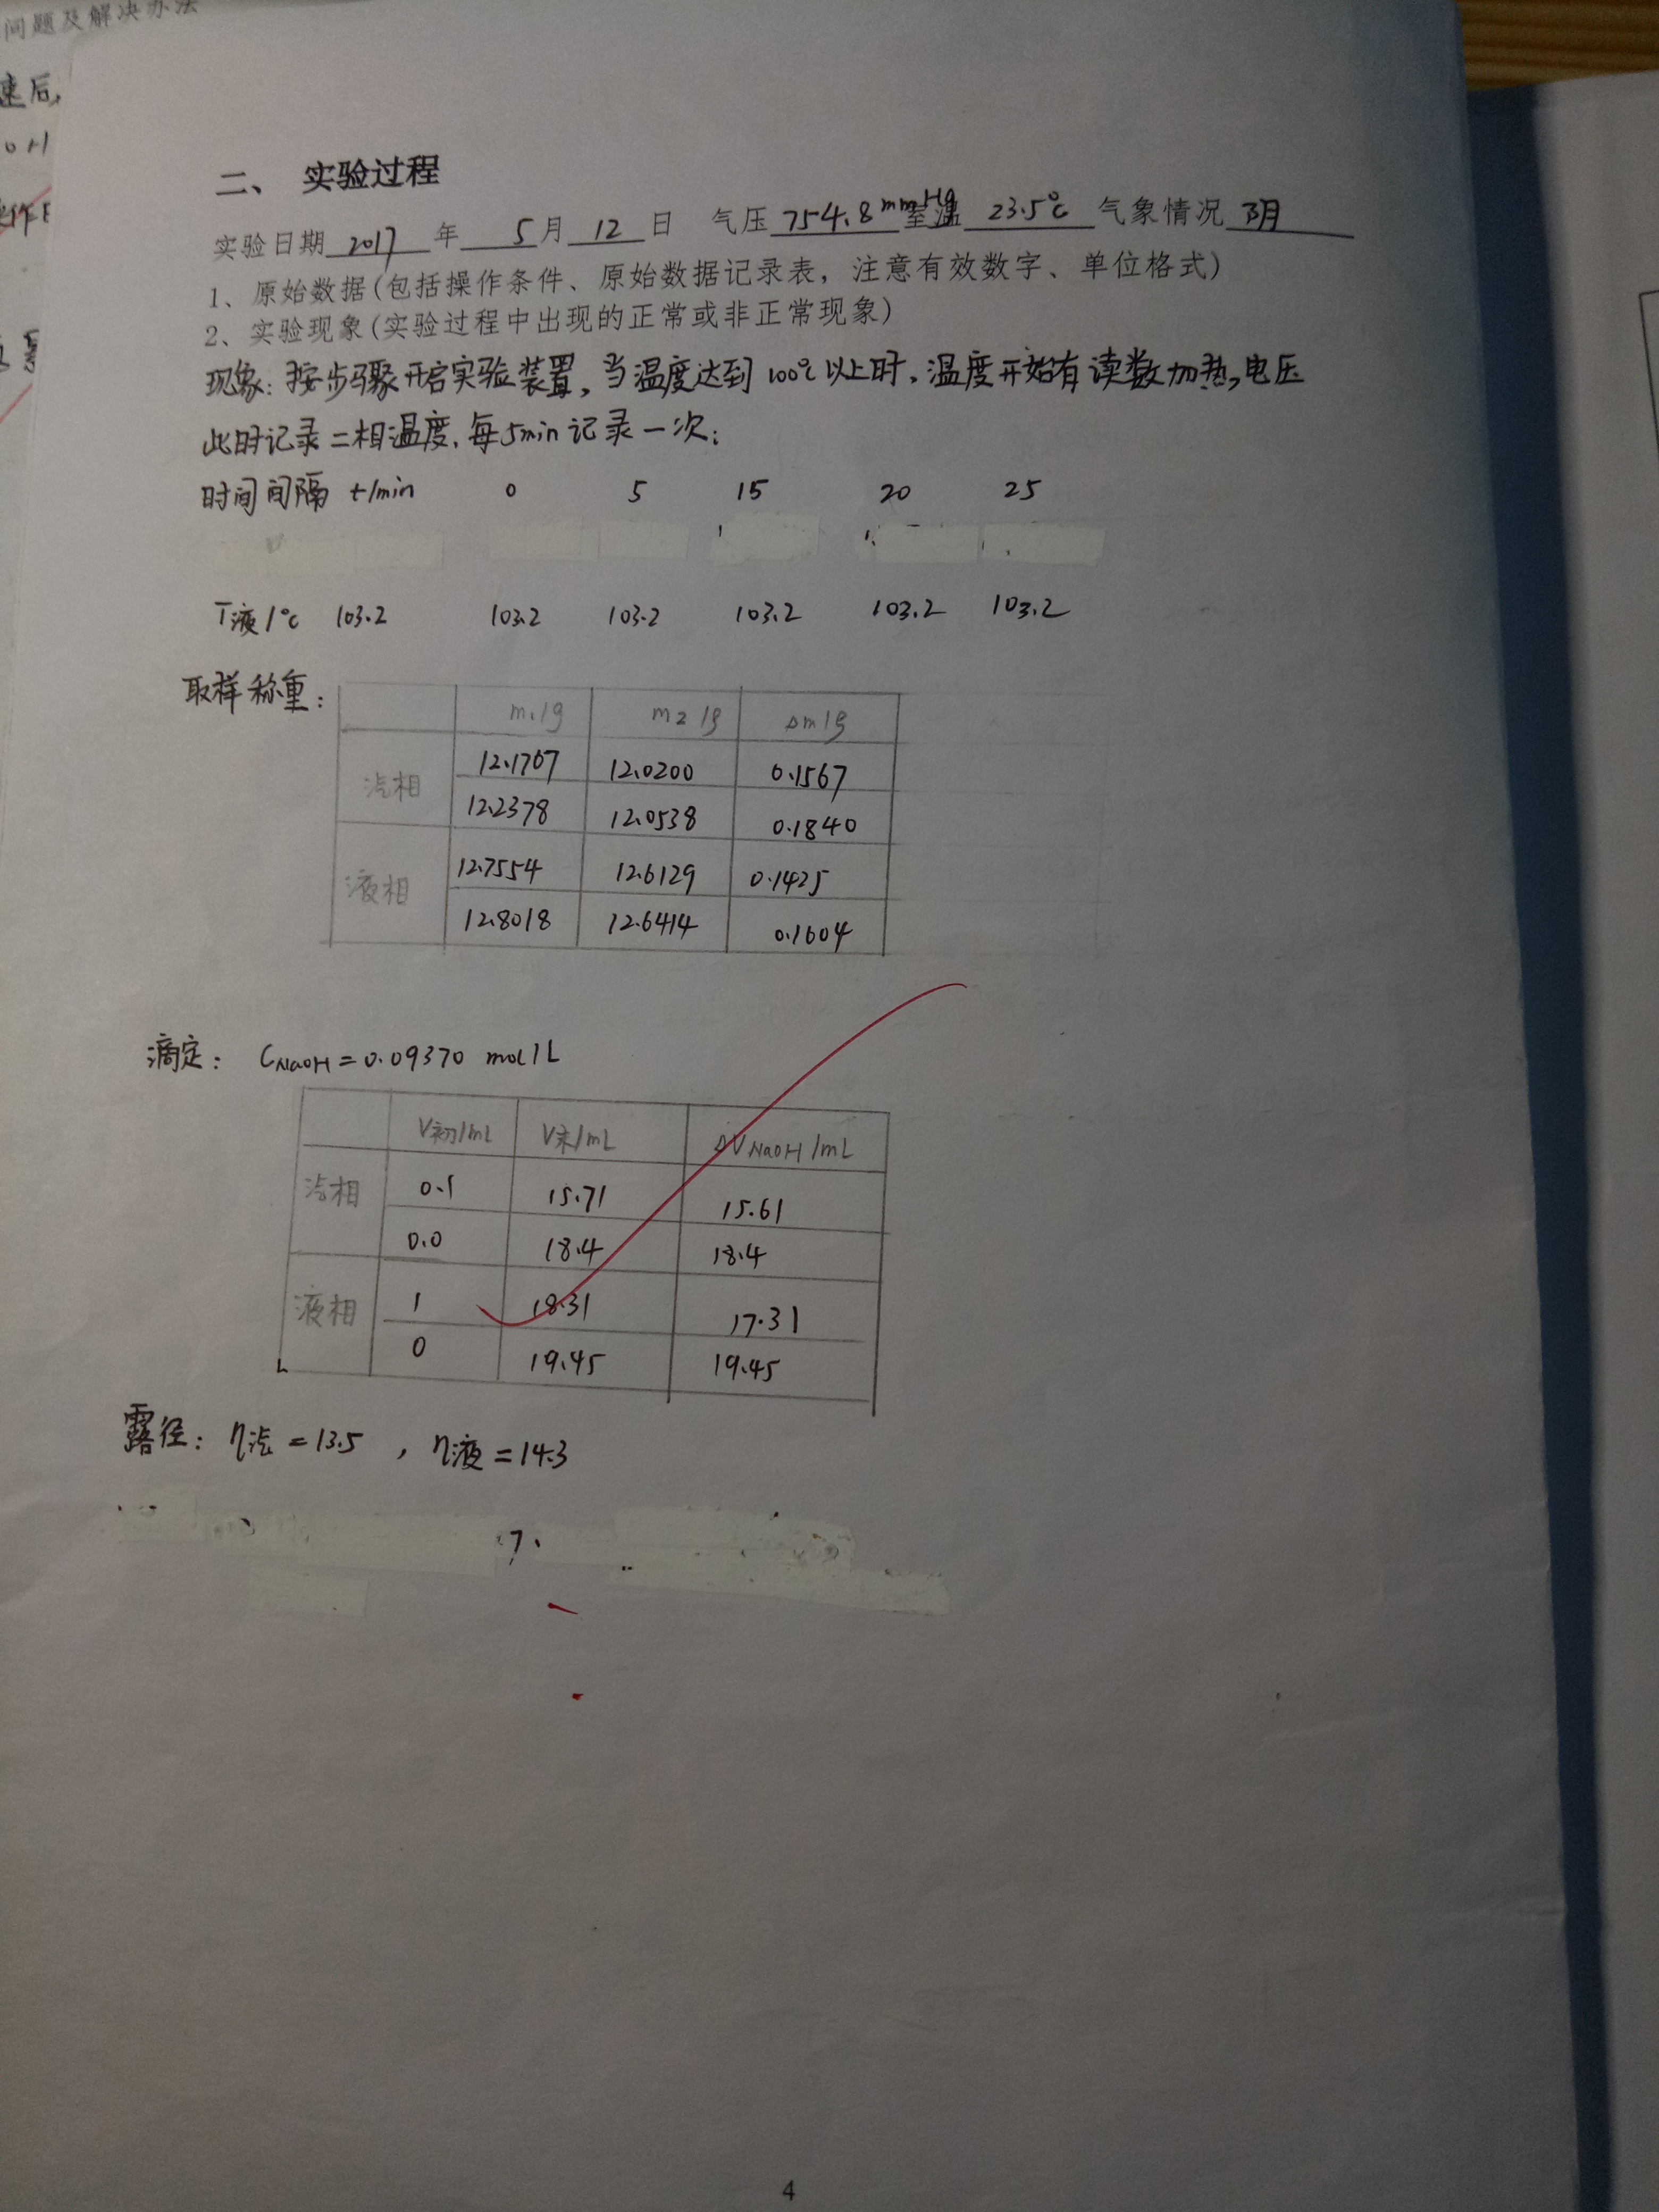 问题及解决办法
速后,
二、 实验过程
实验日期 2017 年 5 月 12 日 气压 754.8mmHg 室温 23.5℃ 气象情况 阴
1、原始数据(包括操作条件、原始数据记录表，注意有效数字、单位格式)
2、实验现象(实验过程中出现的正常或非正常现象)
现象: 按步骤开启实验装置, 当温度达到100℃以上时, 温度开始有读数加热,电压
此时记录二相温度, 每5min记录一次:
时间间隔 t/min 0 5 15 20 25
T液/℃ 103.2 103.2 103.2 103.2 103.2 103.2
取样称重:
m1/g m2/g Δm/g
汽相 12.1767 12.0200 0.1567
12.2378 12.0538 0.1840
液相 12.7554 12.6129 0.1425
12.8018 12.6414 0.1604
滴定: CNaOH=0.09370 mol/L
V初/mL V末/mL ΔVNaOH/mL
汽相 0.1 15.71 15.61
0.0 18.4 18.4
液相 1 18.31 17.31
0 19.45 19.45
露径: η汽=13.5 , η液=14.3
4